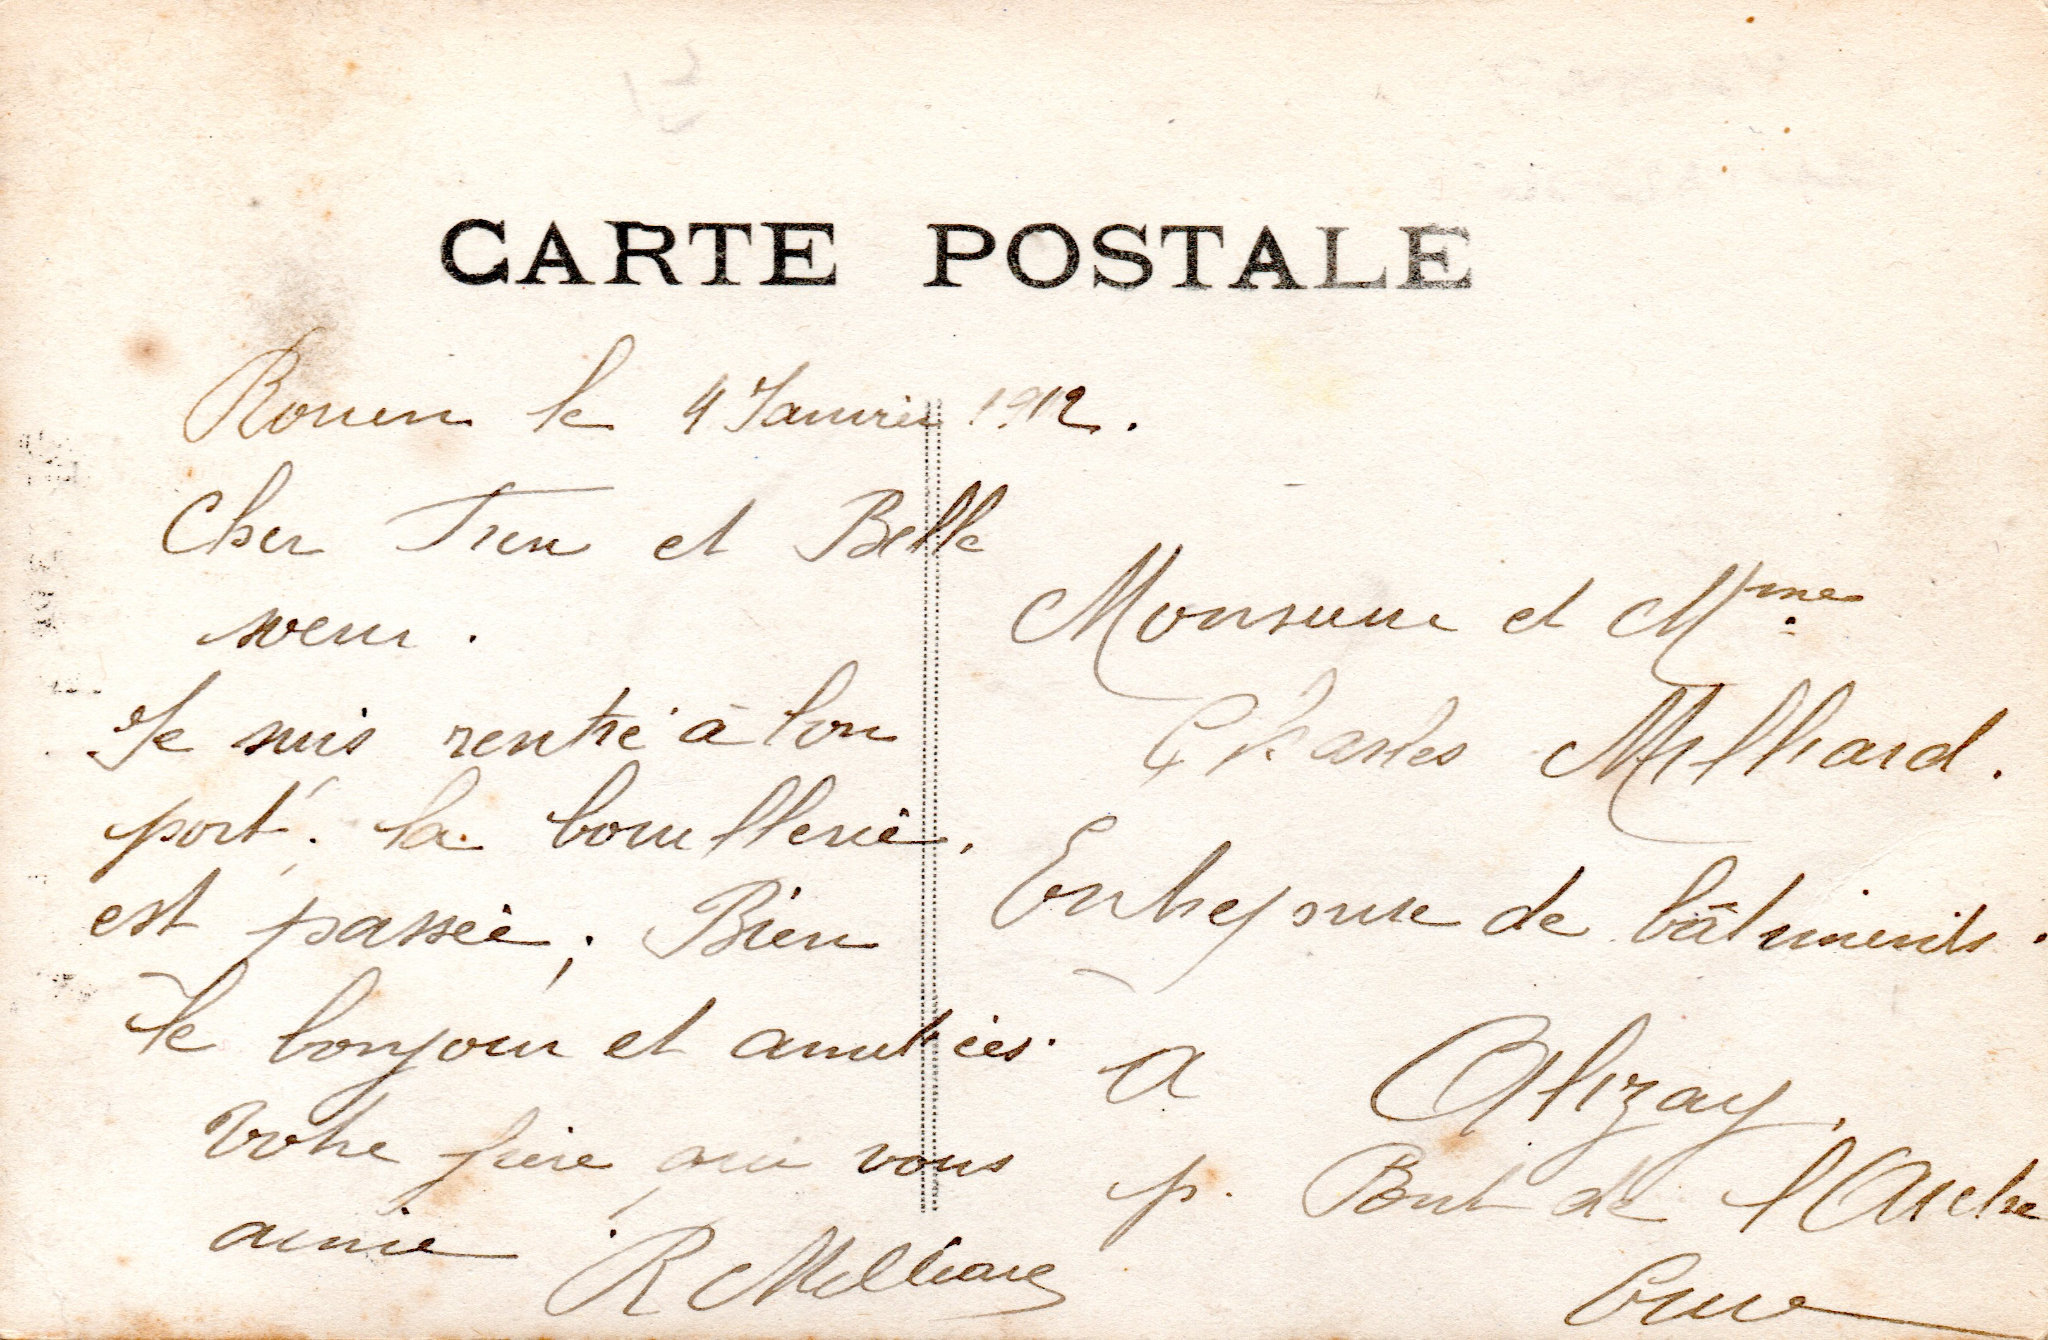 CARTE POSTALE
Rouen le 4 Janvrier 1912.
Cher Frere et Belle
soeur.
Je suis rentré à bon
port. la bouillerie.
est passée; Bien
le bonjour et amitiées.
Votre frere qui vous
aime R Milliard
Monsieur et Mme
Charles Milliard.
Entreprise de bâtiments.
a Alizay.
p. Pont de l'Arche
Eure